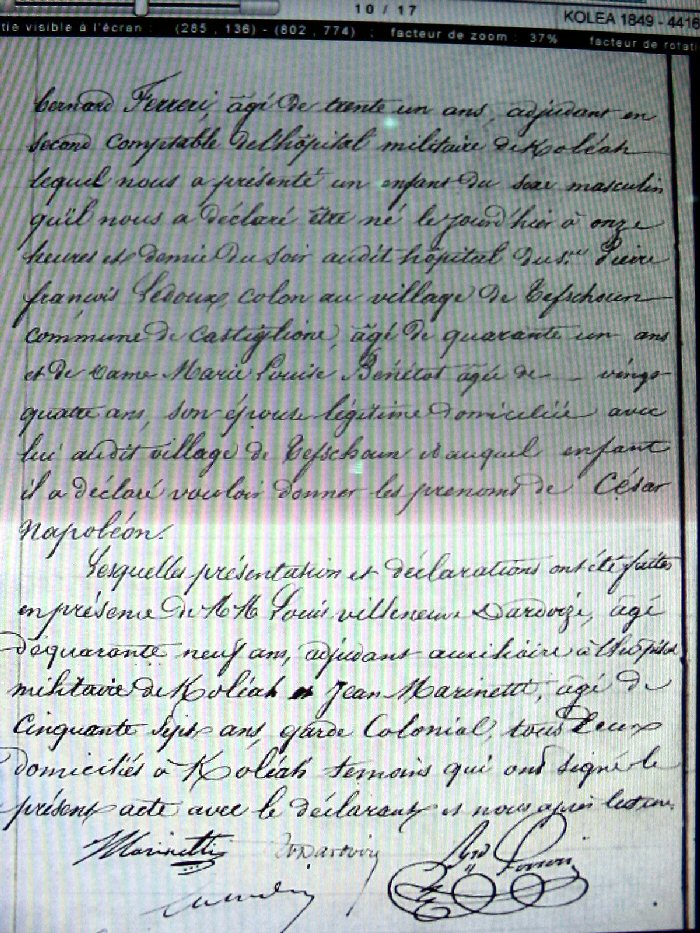 10 / 17
KOLEA 1849 - 4416
tie visible à l'écran : (285 , 136) - (802 , 774) ; facteur de zoom : 37% facteur de rotati
bernard Ferreri, âgé de trente un ans, adjudant en
second comptable de l'hôpital militaire de Koléah
lequel nous a présenté un enfant du sexe masculin
qu'il nous a déclaré être né le jourd'hier à onze
heures et demie du soir audit hôpital du Sr Pierre
françois Ledoux, colon au village de Tefschoun
commune de Castiglione, âgé de quarante un ans
et de Dame Marie Louise Bénétot âgée de vingt
quatre ans, son épouse légitime domiciliée avec
lui audit village de Tefschoun et auquel enfant
il a déclaré vouloir donner les prénoms de César
Napoléon.
Lesquelles présentation et déclarations ont été faites
en présence de MM Louis villeneuve Darovizé, âgé
de quarante neuf ans, adjudant auxiliaire à l'hôpital
militaire de Koléah et Jean Marinetti, âgé de
Cinquante Sept ans, garde Colonial, tous deux
domiciliés à Koléah temoins qui ont signé le
présent acte avec le déclarant et nous après lecture.
Marinetti